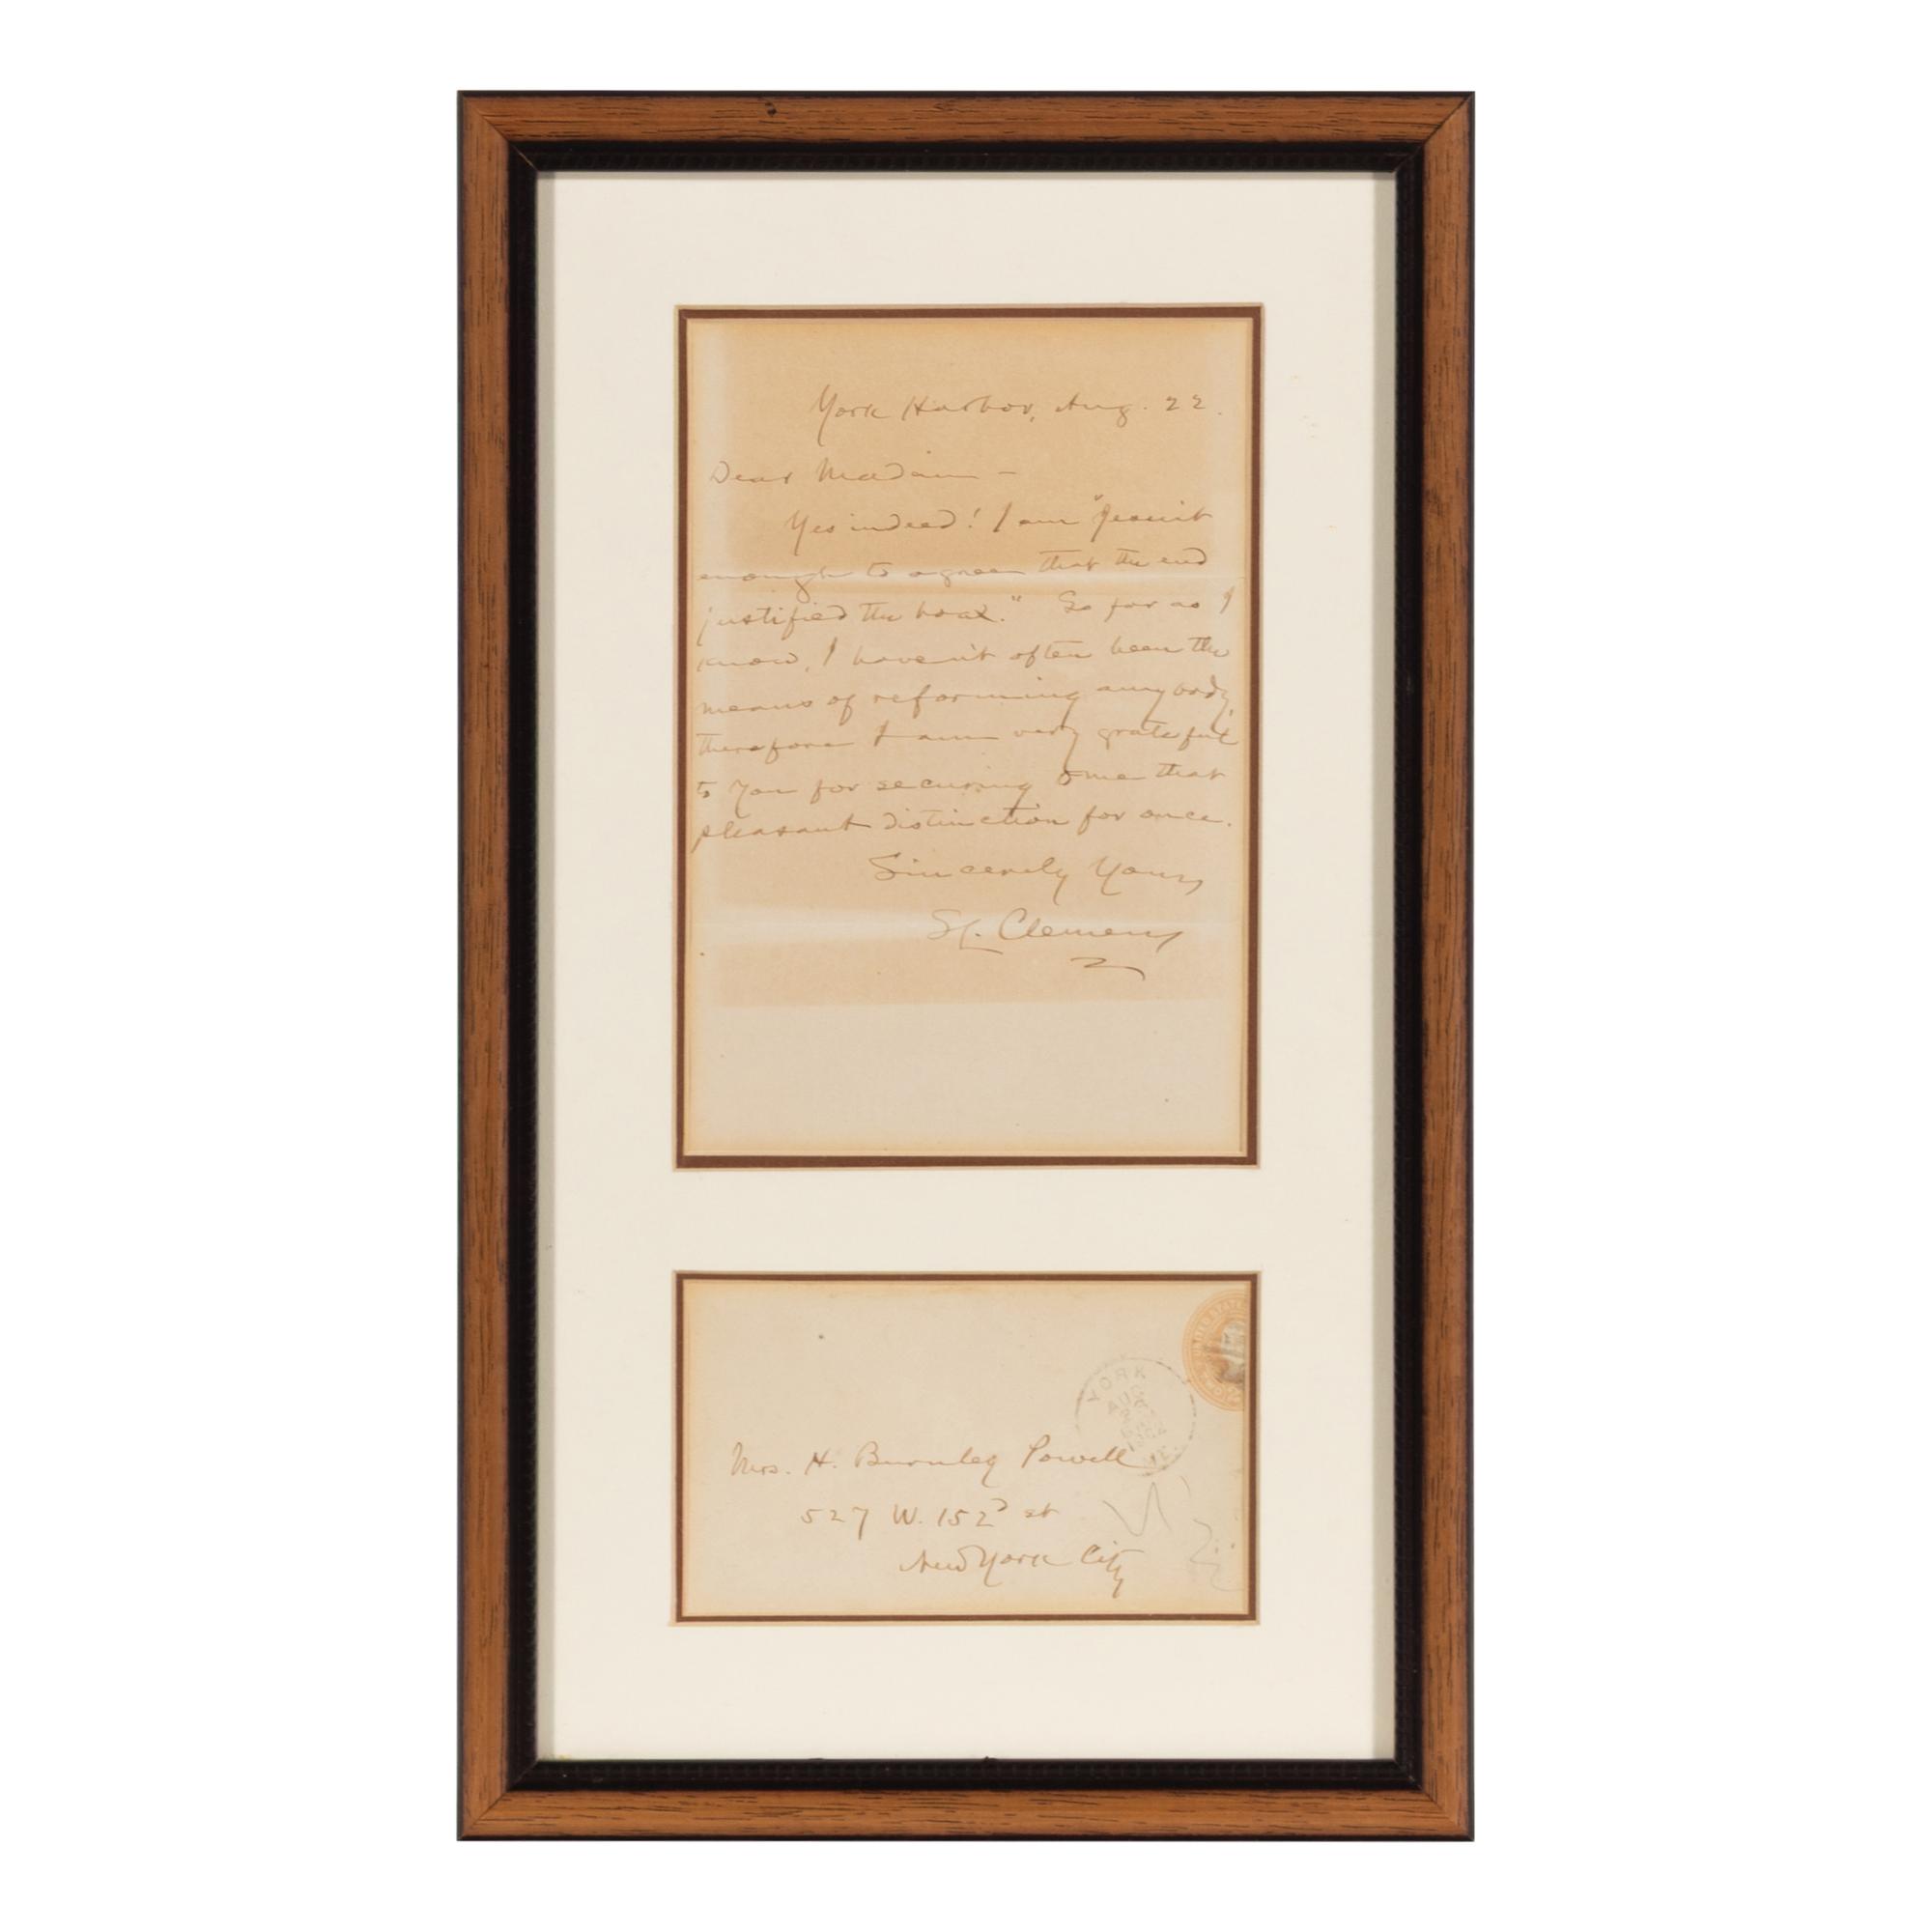 York Harbor, Aug. 22.
Dear Madam —
Yes indeed! I am "Jesuit
enough to agree that the end
justified the hoax." So far as I
know, I haven't often been the
means of reforming anybody,
therefore I am very grateful
to you for securing me that
pleasant distinction for once.
Sincerely Yours
SL. Clemens
YORK
AUG
ME.
Mrs. H. Burnley Powell
527 W. 152d st
New York City